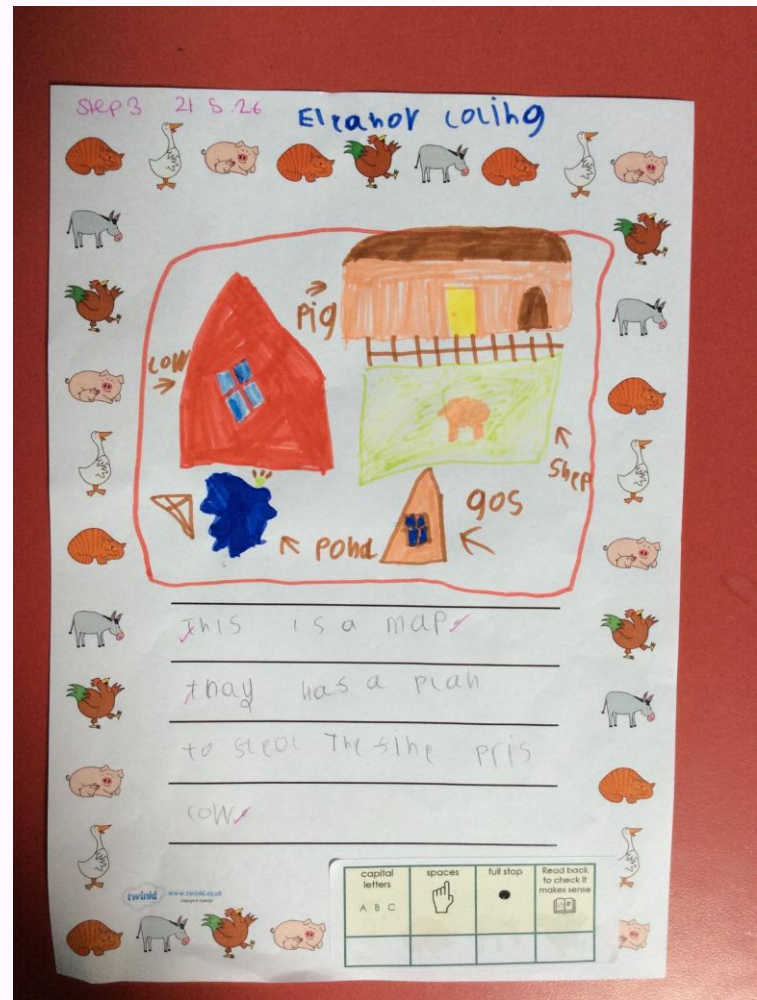 Step 3 21.5.26
Eleanor Coling
pig
cow
shep
gos
pond
This is a map.
thay has a plan
to steol The fine pris
cow.
twinkl www.twinkl.co.uk
capital letters
A B C
spaces
full stop
Read back to check it makes sense